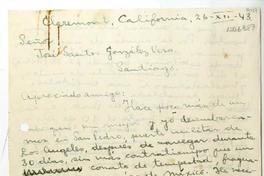 Claremont, California, 26-XII-43
Señor
José Santos González Vera.
Santiago.
Apreciado amigo:
Hace poco más de un
mes que mi mujer y yo desembarca-
mos en San Pedro, puerto militar de
Los Angeles, después de navegar durante
30 días, sin más contratiempo que un
conato de tempestad,
de México. He